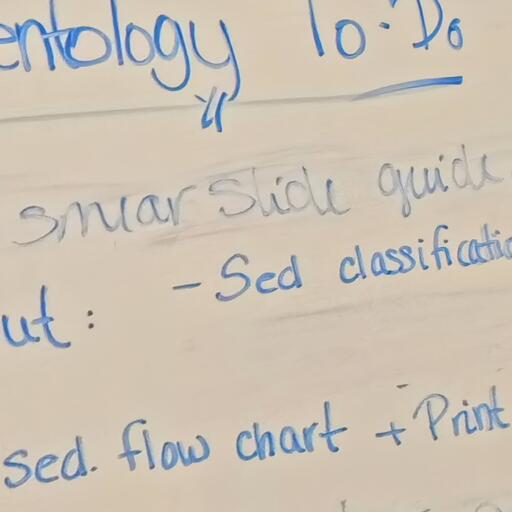 entology To-Do
smear slide guide
ut: - Sed classificatio
sed. flow chart + Print